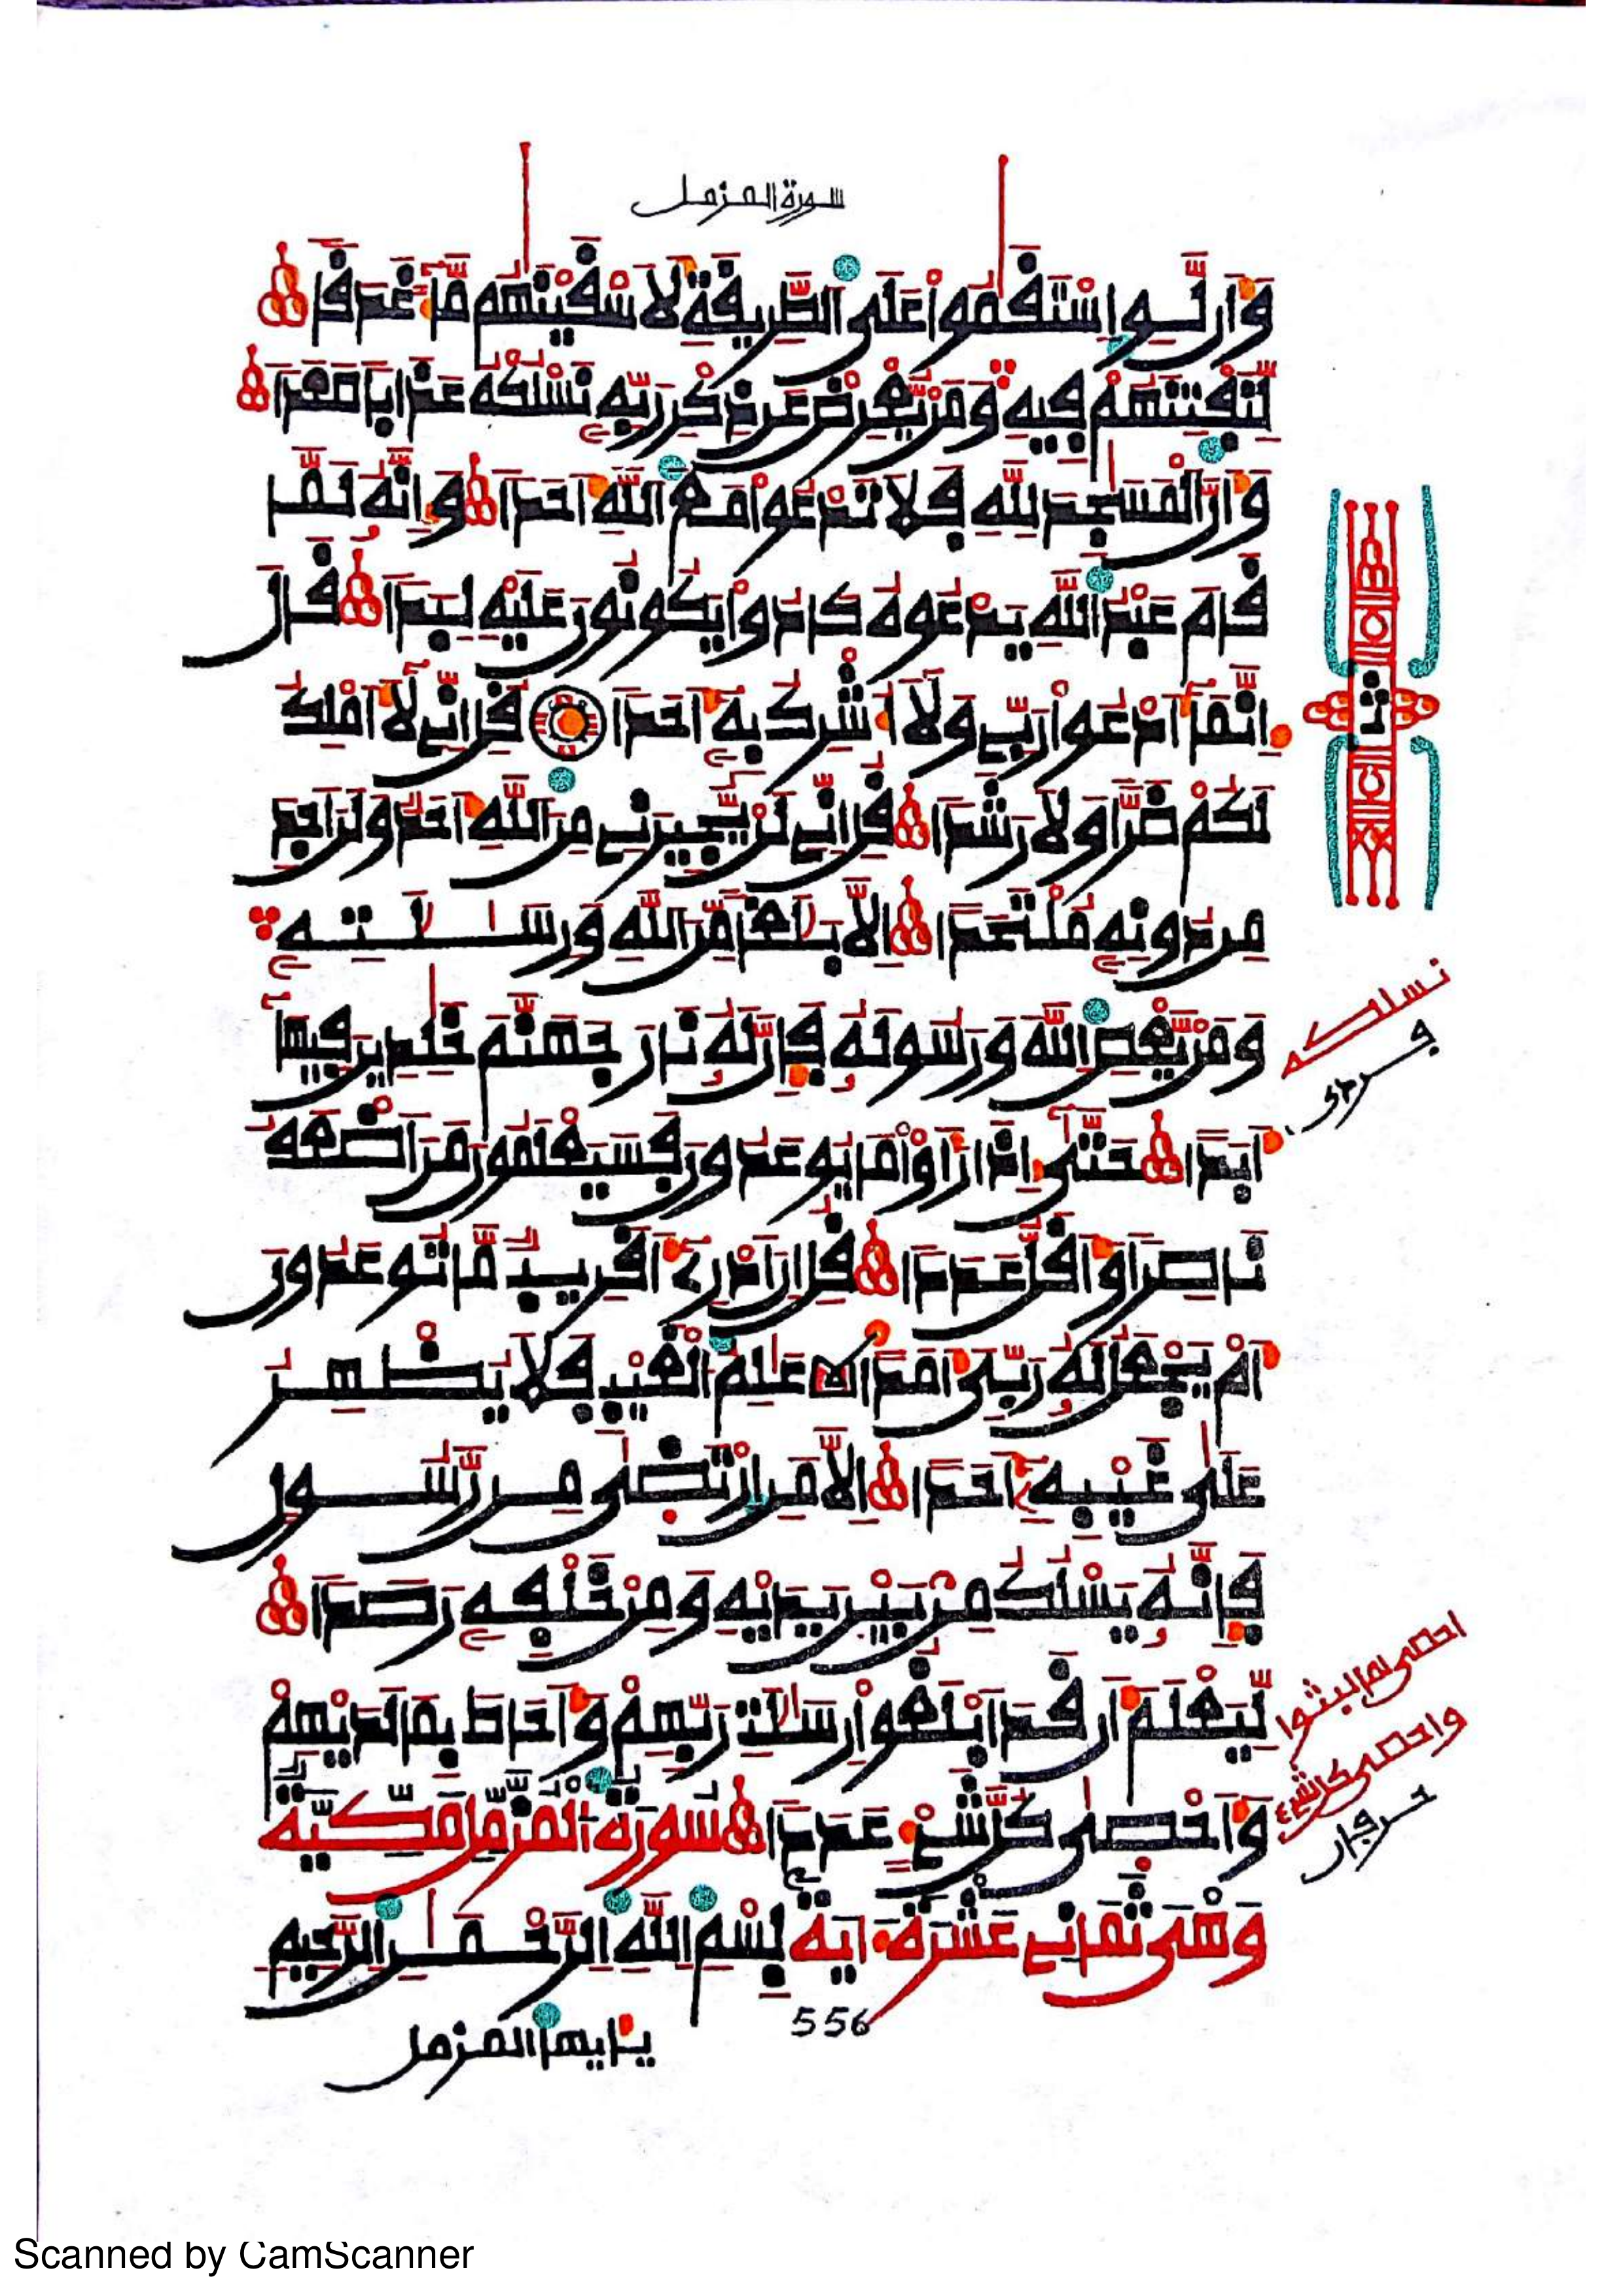 سورة المزمل
وَأَن لَّوِ اِسْتَقَٰمُواْ عَلَى اَلطَّرِيقَةِ لَأَسْقَيْنَٰهُم مَّآءً غَدَقاً
لِّنَفْتِنَهُمْ فِيهِ وَمَنْ يُّعْرِضْ عَن ذِكْرِ رَبِّهِۦ نَسْلُكْهُ عَذَاباً صَعَداً
وَأَنَّ اَلْمَسَٰجِدَ لِلهِ فَلَا تَدْعُواْ مَعَ اَللَّهِ أَحَداً وَإِنَّهُۥ لَمَّا
قَامَ عَبْدُ اُللَّهِ يَدْعُوهُ كَادُواْ يَكُونُونَ عَلَيْهِ لِبَداً قَالَ
إِنَّمَآ أَدْعُواْ رَبِّے وَلَآ أُشْرِكُ بِهِۦٓ أَحَداً قُلِ اِنِّے لَآ أَمْلِكُ
لَكُمْ ضَرّاً وَلَا رَشَداً قُلِ اِنِّے لَنْ يُّجِيرَنِے مِنَ اَللَّهِ أَحَدٌ وَلَنَ اَجِدَ
مِن دُونِهِۦ مُلْتَحَداً اِلَّا بَلَٰغاً مِّنَ اَللَّهِ وَرِسَٰلَٰتِهِۦ
وَمَنْ يَّعْصِ اِللَّهَ وَرَسُولَهُۥ فَإِنَّ لَهُۥ نَارَ جَهَنَّمَ خَٰلِدِينَ فِيهَآ
أَبَداً حَتَّىٰٓ إِذَا رَأَوْاْ مَا يُوعَدُونَ فَسَيَعْلَمُونَ مَنَ اَضْعَفُ
نَاصِراً وَأَقَلُّ عَدَداً قُلِ اِنَ اَدْرِےٓ أَقَرِيبٌ مَّا تُوعَدُونَ
أَمْ يَجْعَلُ لَهُۥ رَبِّىَ أَمَداً عَٰلِمُ اُلْغَيْبِ فَلَا يُظْهِرُ
عَلَىٰ غَيْبِهِۦٓ أَحَداً اِلَّا مَنِ اِرْتَضَىٰ مِن رَّسُولٍ
فَإِنَّهُۥ يَسْلُكُ مِنۢ بَيْنِ يَدَيْهِ وَمِنْ خَلْفِهِۦ رَصَداً
لِّيَعْلَمَ أَن قَدَ اَبْلَغُواْ رِسَٰلَٰتِ رَبِّهِمْ وَأَحَاطَ بِمَا لَدَيْهِمْ
وَأَحْصَىٰ كُلَّ شَےْءٍ عَدَداً سُورَةُ اُلْمُزَّمِّلِ مَكِّيَّةٌ
وَهْىَ ثَمَانِے عَشْرَةَ ءَايَةً بِسْمِ اِللَّهِ اِلرَّحْمَٰنِ اِلرَّحِيمِ
556
يٰأيها المزمل
ثمن
نسلكه
احصى لما لبثوا
واحصى كل شےء
حرفان
Scanned by CamScanner